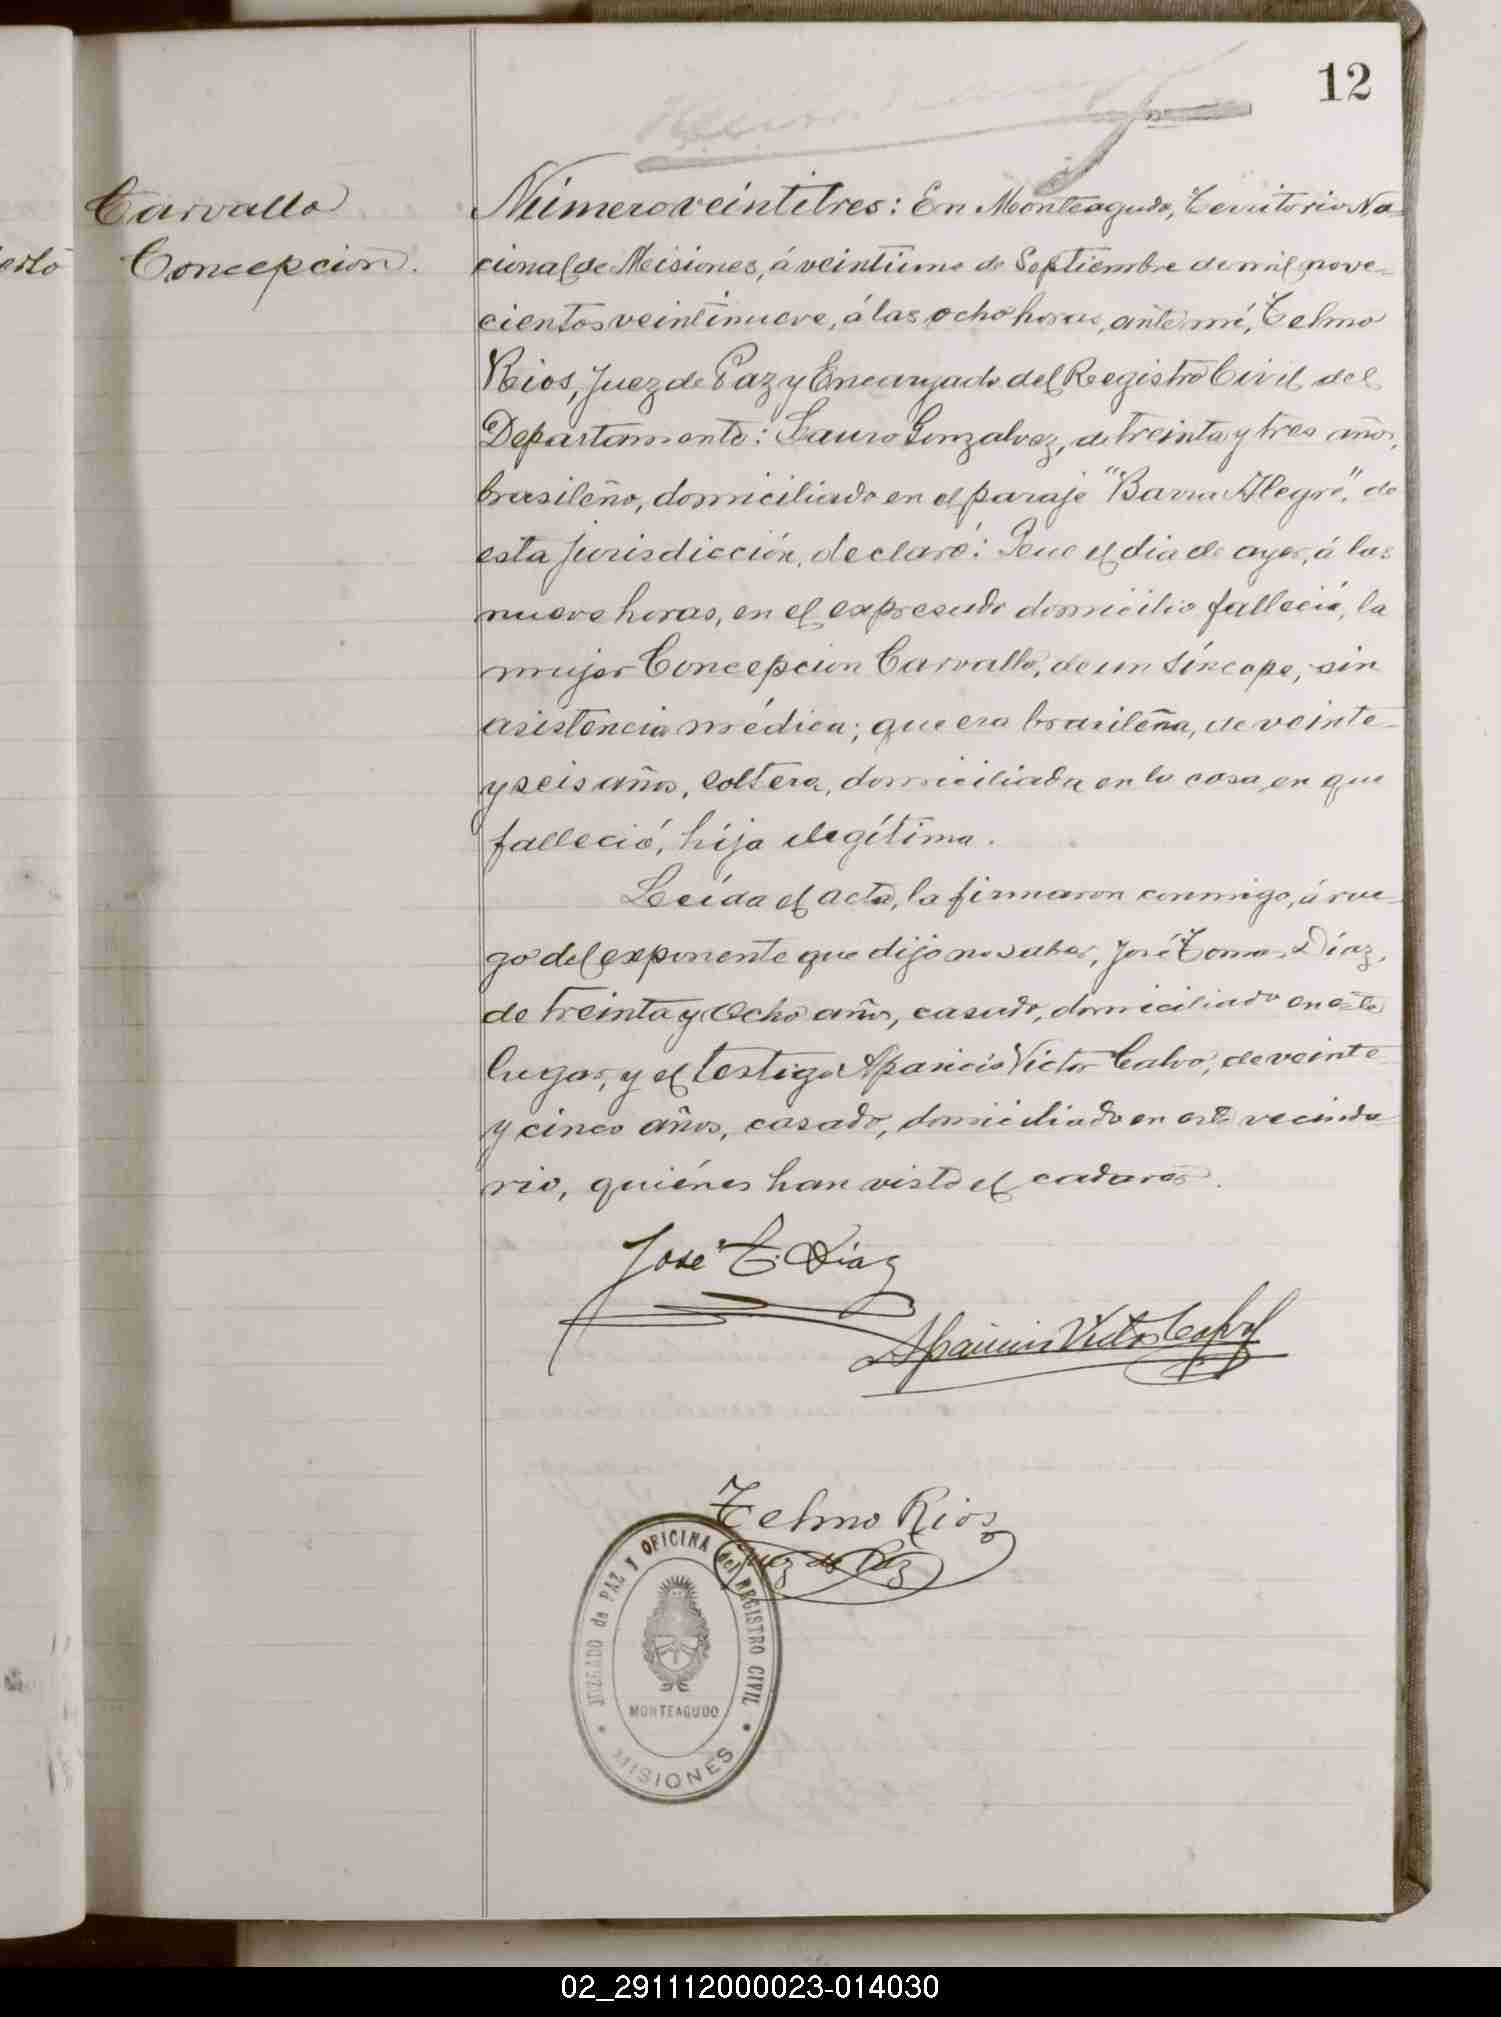 12
Carvallo
Concepcion.
Número veintitres: En Monteagudo, Territorio Na-
cional de Misiones, á veintiuno de Septiembre de mil nove-
cientos veintinueve, á las ocho horas, ante mí, Telmo
Rios, Juez de Paz y Encargado del Registro Civil del
Departamento: Lauro Gonzalvez, de treinta y tres años,
brasileño, domiciliado en el paraje "Barra Alegre", de
esta jurisdicción, declaró: Que el dia de ayer, á las
nueve horas, en el expresado domicilio falleció, la
mujer Concepcion Carvallo, de un síncope, sin
asistencia médica; que era brasileña, de veinte
y seis años, soltera, domiciliada en la casa en que
falleció, hija ilegítima.
Leída el acta, la firmaron conmigo, á rue-
go del exponente que dijo no saber, José Tomas Díaz,
de treinta y ocho años, casado, domiciliado en este
lugar, y el testigo Aparicio Victor Calvo, de veinte
y cinco años, casado, domiciliado en este vecinda-
rio, quiénes han visto el cadaver.
José T. Díaz
Aparicio Victor Calvo
Telmo Rios
Juez de Paz
JUZGADO de PAZ Y OFICINA del REGISTRO CIVIL
MONTEAGUDO
MISIONES
02_291112000023-014030